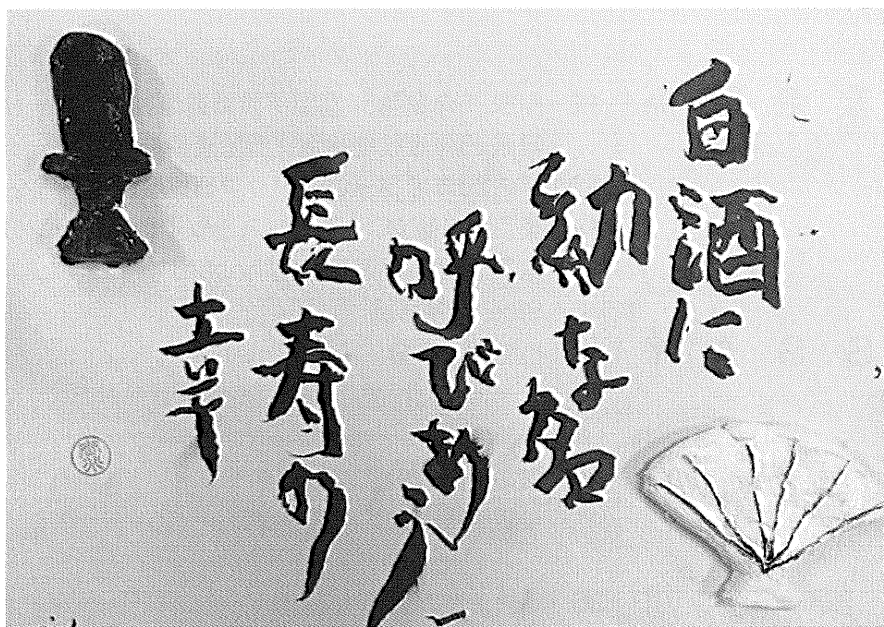 白酒に
幼な名
呼びあう
長寿の
幸